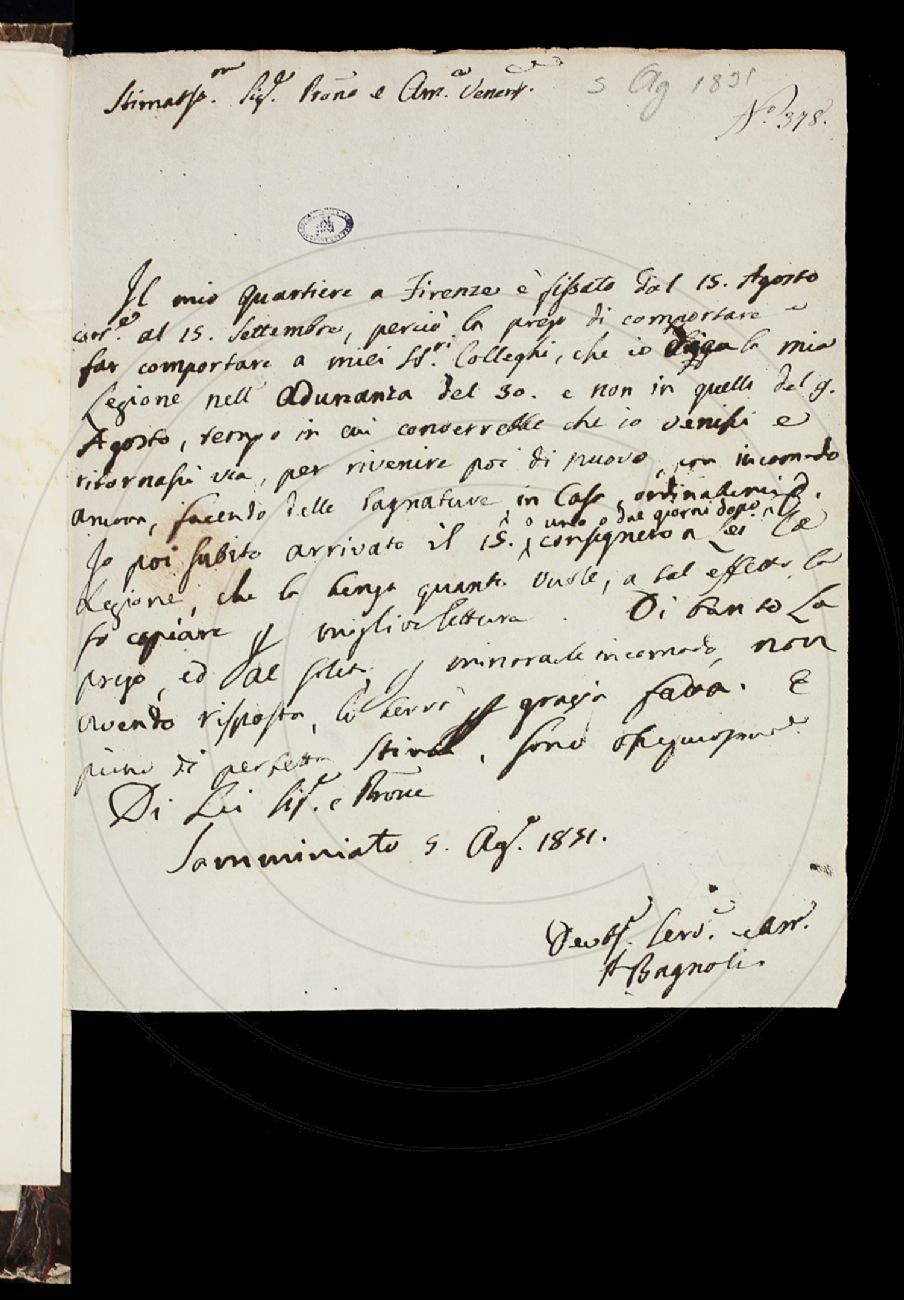 Stimatss.mo Sig.e Prone e Am.o Vener.e
5 Ag 1831
N.o 378.
Il mio quartiere a Firenze è fissato dal 15. Agosto
corr.e al 15. Settembre, perciò la prego di comportare e
far comportare a miei SS.ri Colleghi, che io legga la mia
Lezione nell'Adunanza del 30. e non in quella del 9.
Agosto, tempo in cui converrebbe che io venissi e
ritornassi via, per rivenire poi di nuovo, con incomodo
ancora, facendo delle lagnature in Casa
Io poi subito arrivato il 15. o uno o due giorni dopo, consegnerò a Lei la
Lezione, che la tenga quanto vuole, a tal effetto la
fo copiare p migliore lettura. Di tanto La
prego, ed al solito p minorarle incomodo, non
avendo risposta, la terrò p grazia fatta. E
pieno di perfetta Stima, sono
Di Lei Sig.e e Prone
Samminiato 5. Ag.o 1831.
Devotss. Serv.e e Am.
P Bagnoli